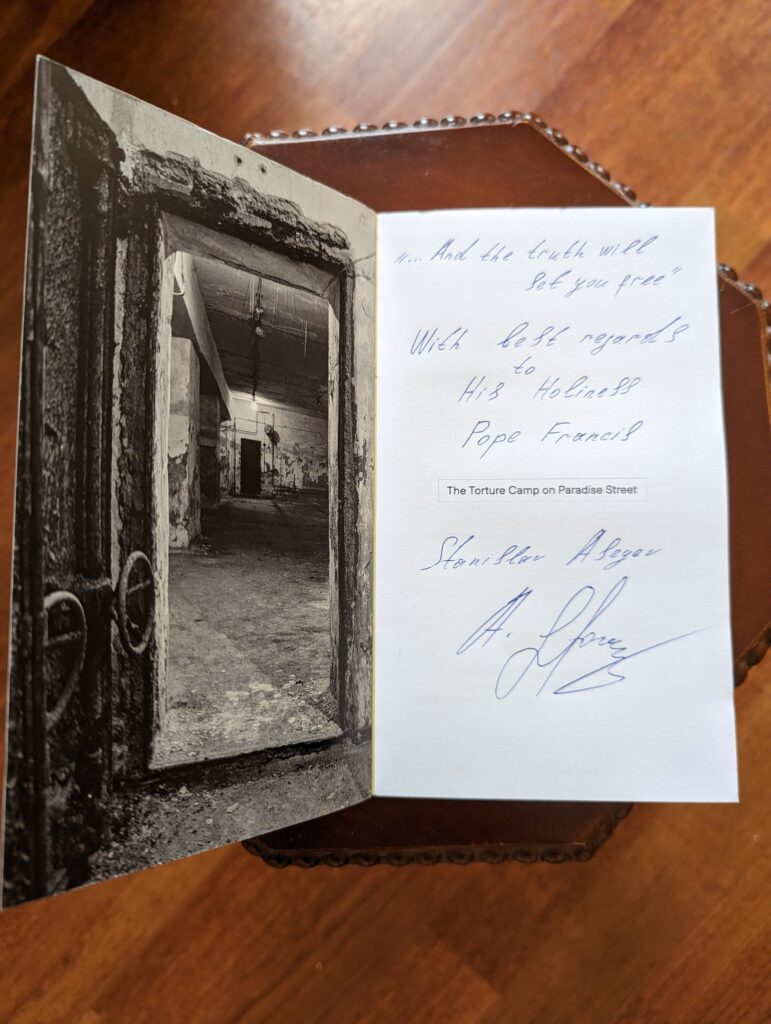 "... And the truth will
set you free"
With best regards
to
His Holiness
Pope Francis
The Torture Camp on Paradise Street
Stanislav Aseyev